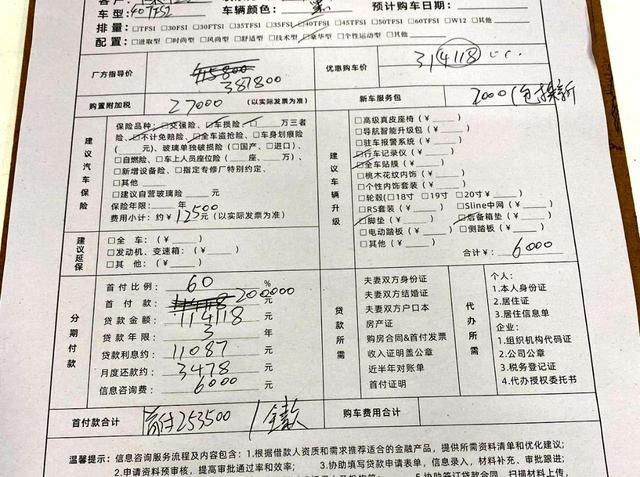 车型: 40TFSI 车辆颜色: 黑 预计购车日期:
排量: □TFSI □30FTSI □35TFSI □35FSI □40TFSI □45TFSI □50TFSI □60TFSI □W12 □其他
配置: □进取型 □时尚型 □风尚型 □舒适型 □技术型 □豪华型 □个性运动型 □其他
厂方指导价 415800 387800 优惠购车价 314118
购置附加税 27000 (以实际发票为准) 新车服务包 2000
建议汽车保险
保险品种: □交强险、□车损险、□ 万三者
险、□不计免赔险、□全车盗抢险、□车身划痕险
( 元)、玻璃单独破损 (□国产、□进口)、
□自燃险、□车上人员座位险 ( 座、 万)、
□新增设备险、□指定专修厂特别约定、
□其他
□建议自营玻璃险 元
保险年限: 年
费用小计: 约¥12500元 (以实际发票为准)
建议车辆升级
□高级真皮座椅 (¥ )
□导航智能升级包 (¥ )
□驻车报警系统 (¥ )
□行车记录仪 (¥ )
□全车贴膜 (¥ )
□桃木花纹内饰 (¥ )
□个性内饰套装 (¥ )
□轮毂(□18寸 □19寸 □20寸¥ )
□RS套装 (¥ ) □Sline中网 (¥ )
□脚垫 (¥ ) □后备箱垫 (¥ )
□电动踏板 (¥ ) □侧踏板 (¥ )
□其他 (¥ )
合计¥: 6000
建议延保
□全 车: (¥ )
□发动机、变速箱: (¥ )
□其 他: (¥ )
分期付款
首付比例: 60 %
首 付 款: 200000 元
贷款金额: 114118 元
贷款年限: 3 年
贷款利息约: 11087 元
月度还款约: 3478 元
信息咨询费: 6000 元
贷款所需
夫妻双方身份证
夫妻双方结婚证
夫妻双方户口本
房产证
购房合同&首付发票
收入证明盖公章
近半年对账单
首付证明
代办所需
个人:
1.本人身份证
2.居住证
3.居住信息单
企业:
1.组织机构代码证
2.公司公章
3.税务登记证
4.代办授权委托书
首付款合计 首付253500 购车费用合计
温馨提示: 信息咨询服务流程及内容包含: 1.根据借款人资质和需求推荐适合的金融产品, 提供所需资料清单和优化建议;
2.申请资料预审核, 提高审批通过率和效率; 3.协助填写贷款申请表单, 信息录入, 材料补充, 审批跟进;